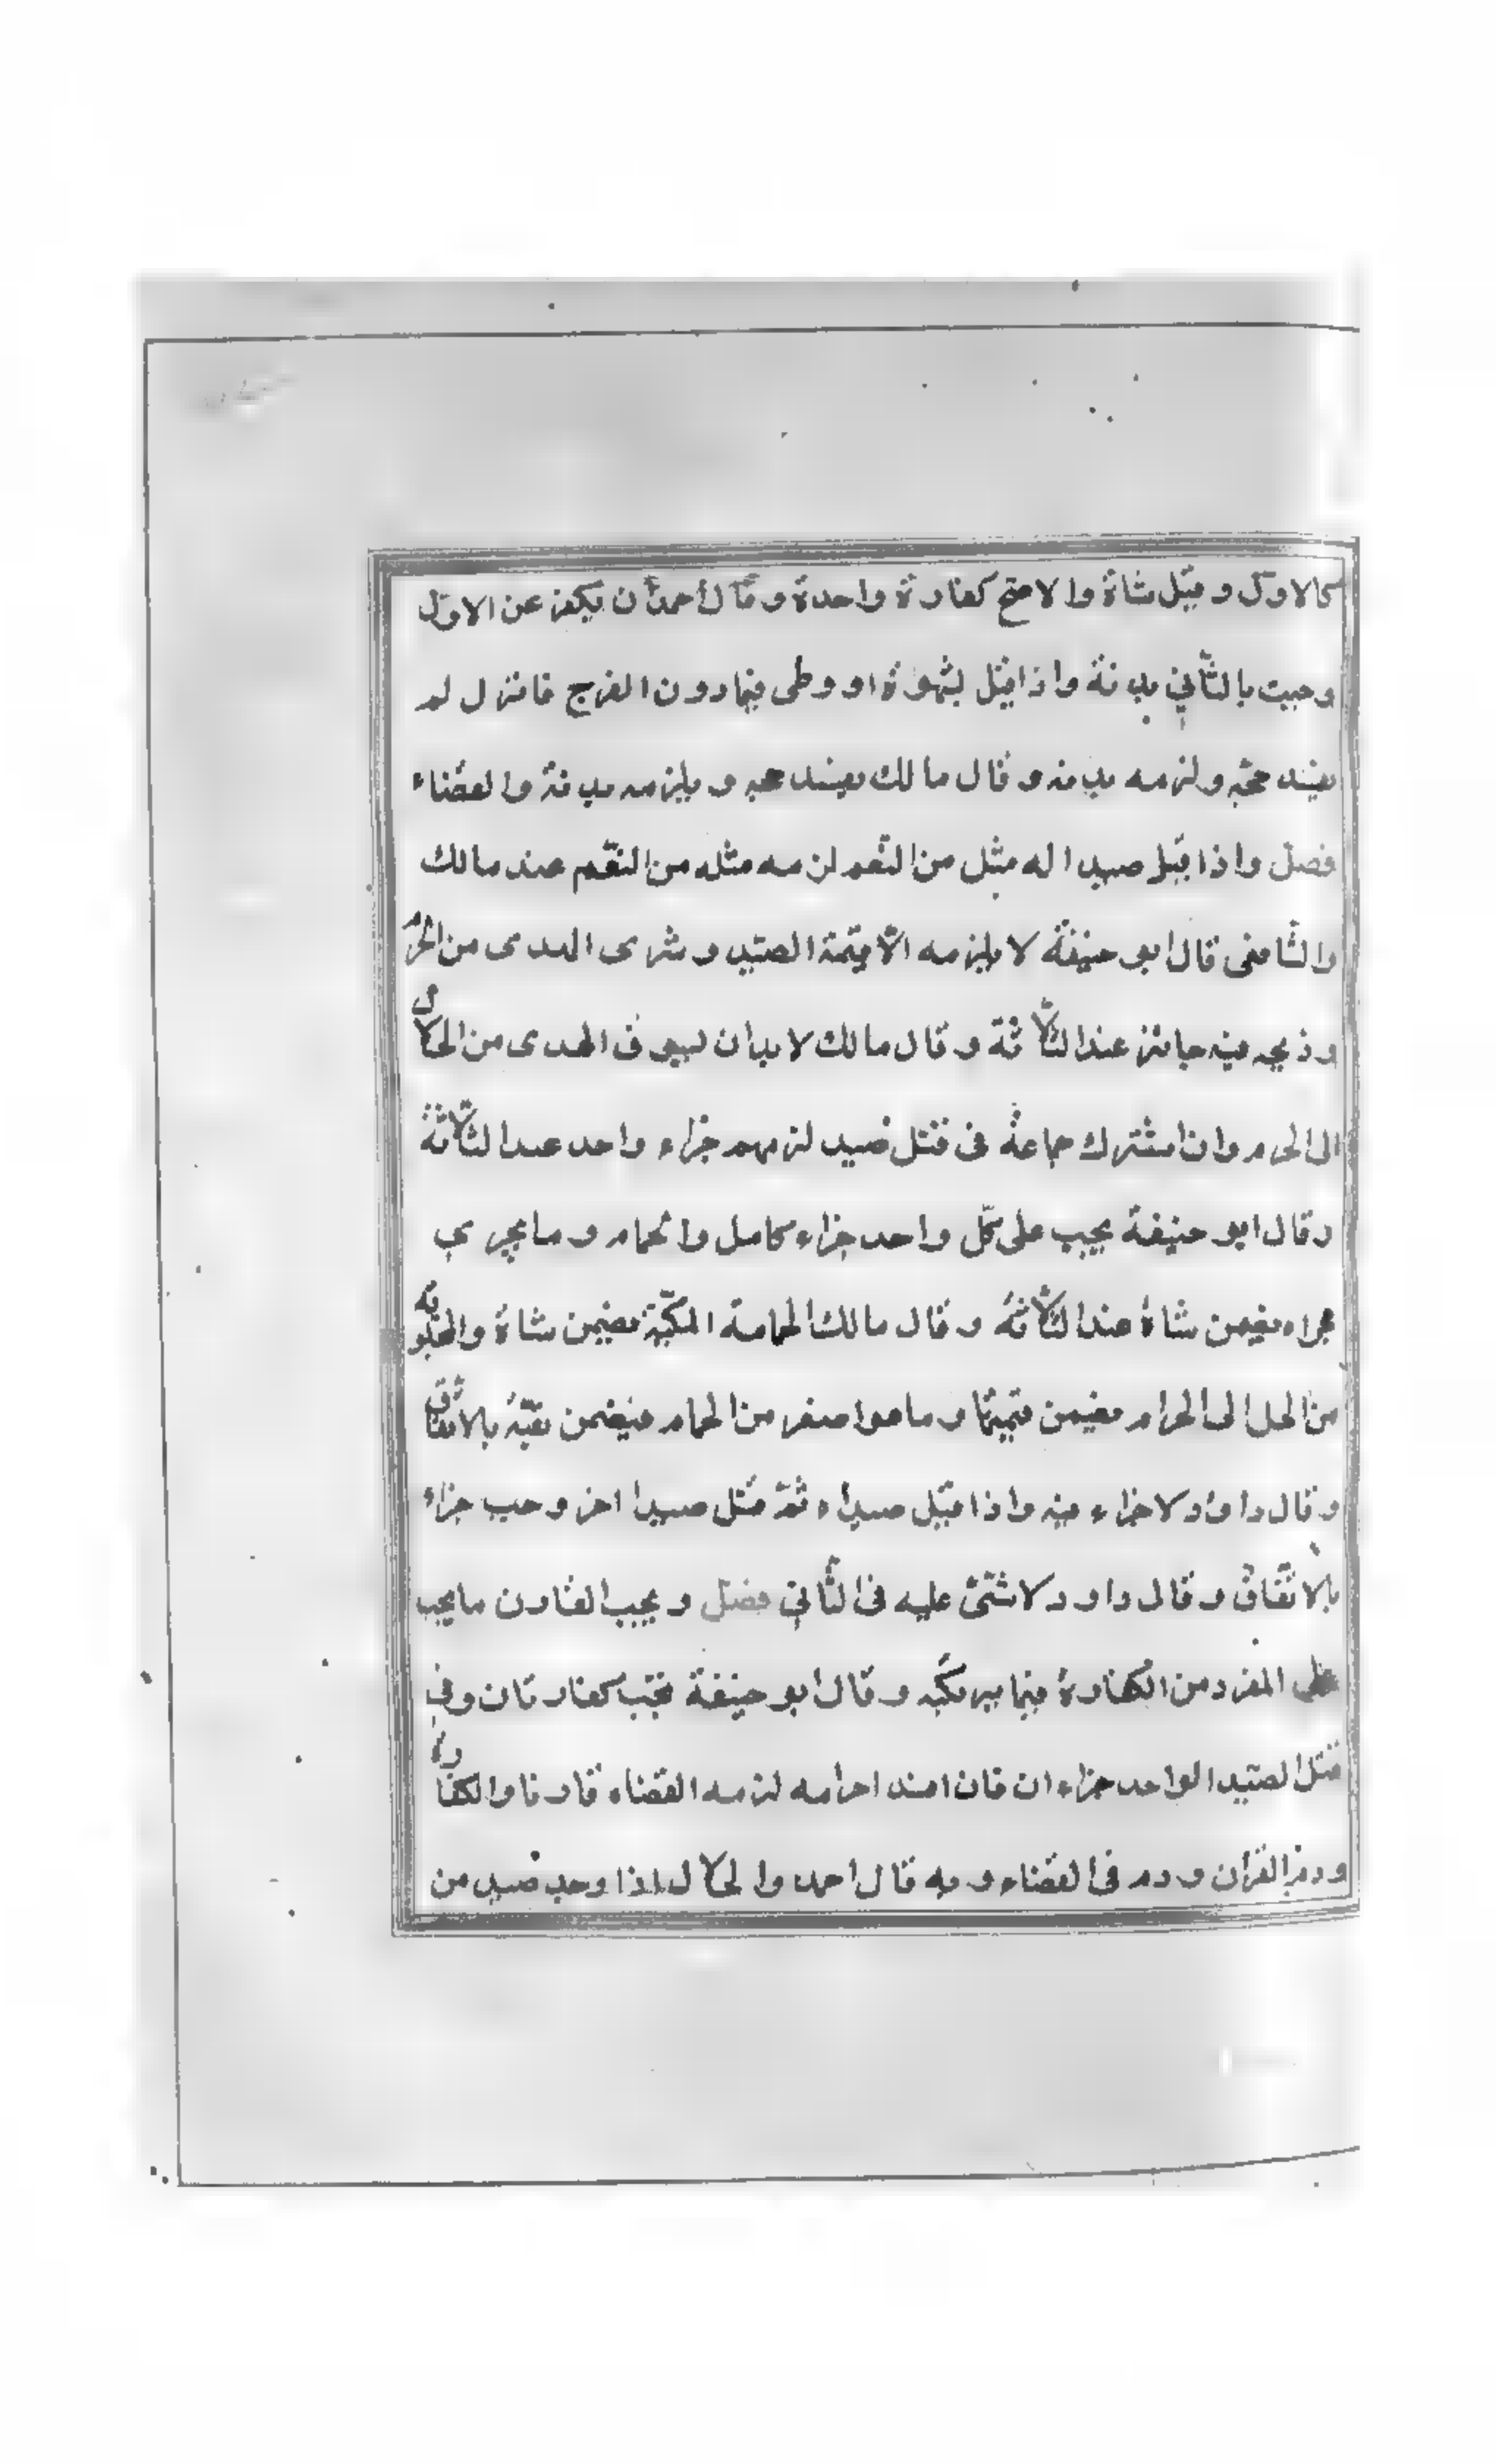 كالاول وقيل شاة والاصح كفارة واحدة وقال أحمد أن يكفر عن الاول
وجبت بالثاني بدنة واذا قبل بشهوة او وطى فيما دون الفرج فانزل لم
يفسد حجه ولزمه بدنه وقال مالك يفسد حجه ويلزمه بدنة والقضاء
فصل واذا قتل صيدا له مثل من النعم لزمه مثله من النعم عند مالك
والشافعى قال ابو حنيفة لا يلزمه الا قيمة الصيد وشرى الهدى من الحرم
وذبحه فيه جائز عند الثلاثة وقال مالك لا بد ان يسوق الهدى من الحلال
الى الحرم وان اشترك جماعة فى قتل صيد لزمهم جزاء واحد عند الثلاثة
وقال ابو حنيفة يجب على كل واحد جزاء كامل والحمام وما يجري
مجراه يضمن شاة عند الثلاثة وقال مالك الحمامة المكية يضمن شاة والمجلوبة
من الحل الى الحرام يضمن قيمتها وما هو اصغر من الحمام فيضمن بقيمة بالاتفاق
وقال داود لا جزاء فيه واذا قتل صيداء ثم قتل صيدا اخر وجب جزاء
بالاتفاق وقال داود لا شئ عليه فى الثاني فصل ويجب القارن ما يجب
على المفرد من الكفارة فيما يرتكبه وقال ابو حنيفة تجب كفارتان وفي
قتل الصيد الواحد جزاء ان فان افسد احرامه لزمه القضاء قارنا والكفارة
ودم القران ودم فى القضاء وبه قال احمد والحلال اذا وجد صيد من